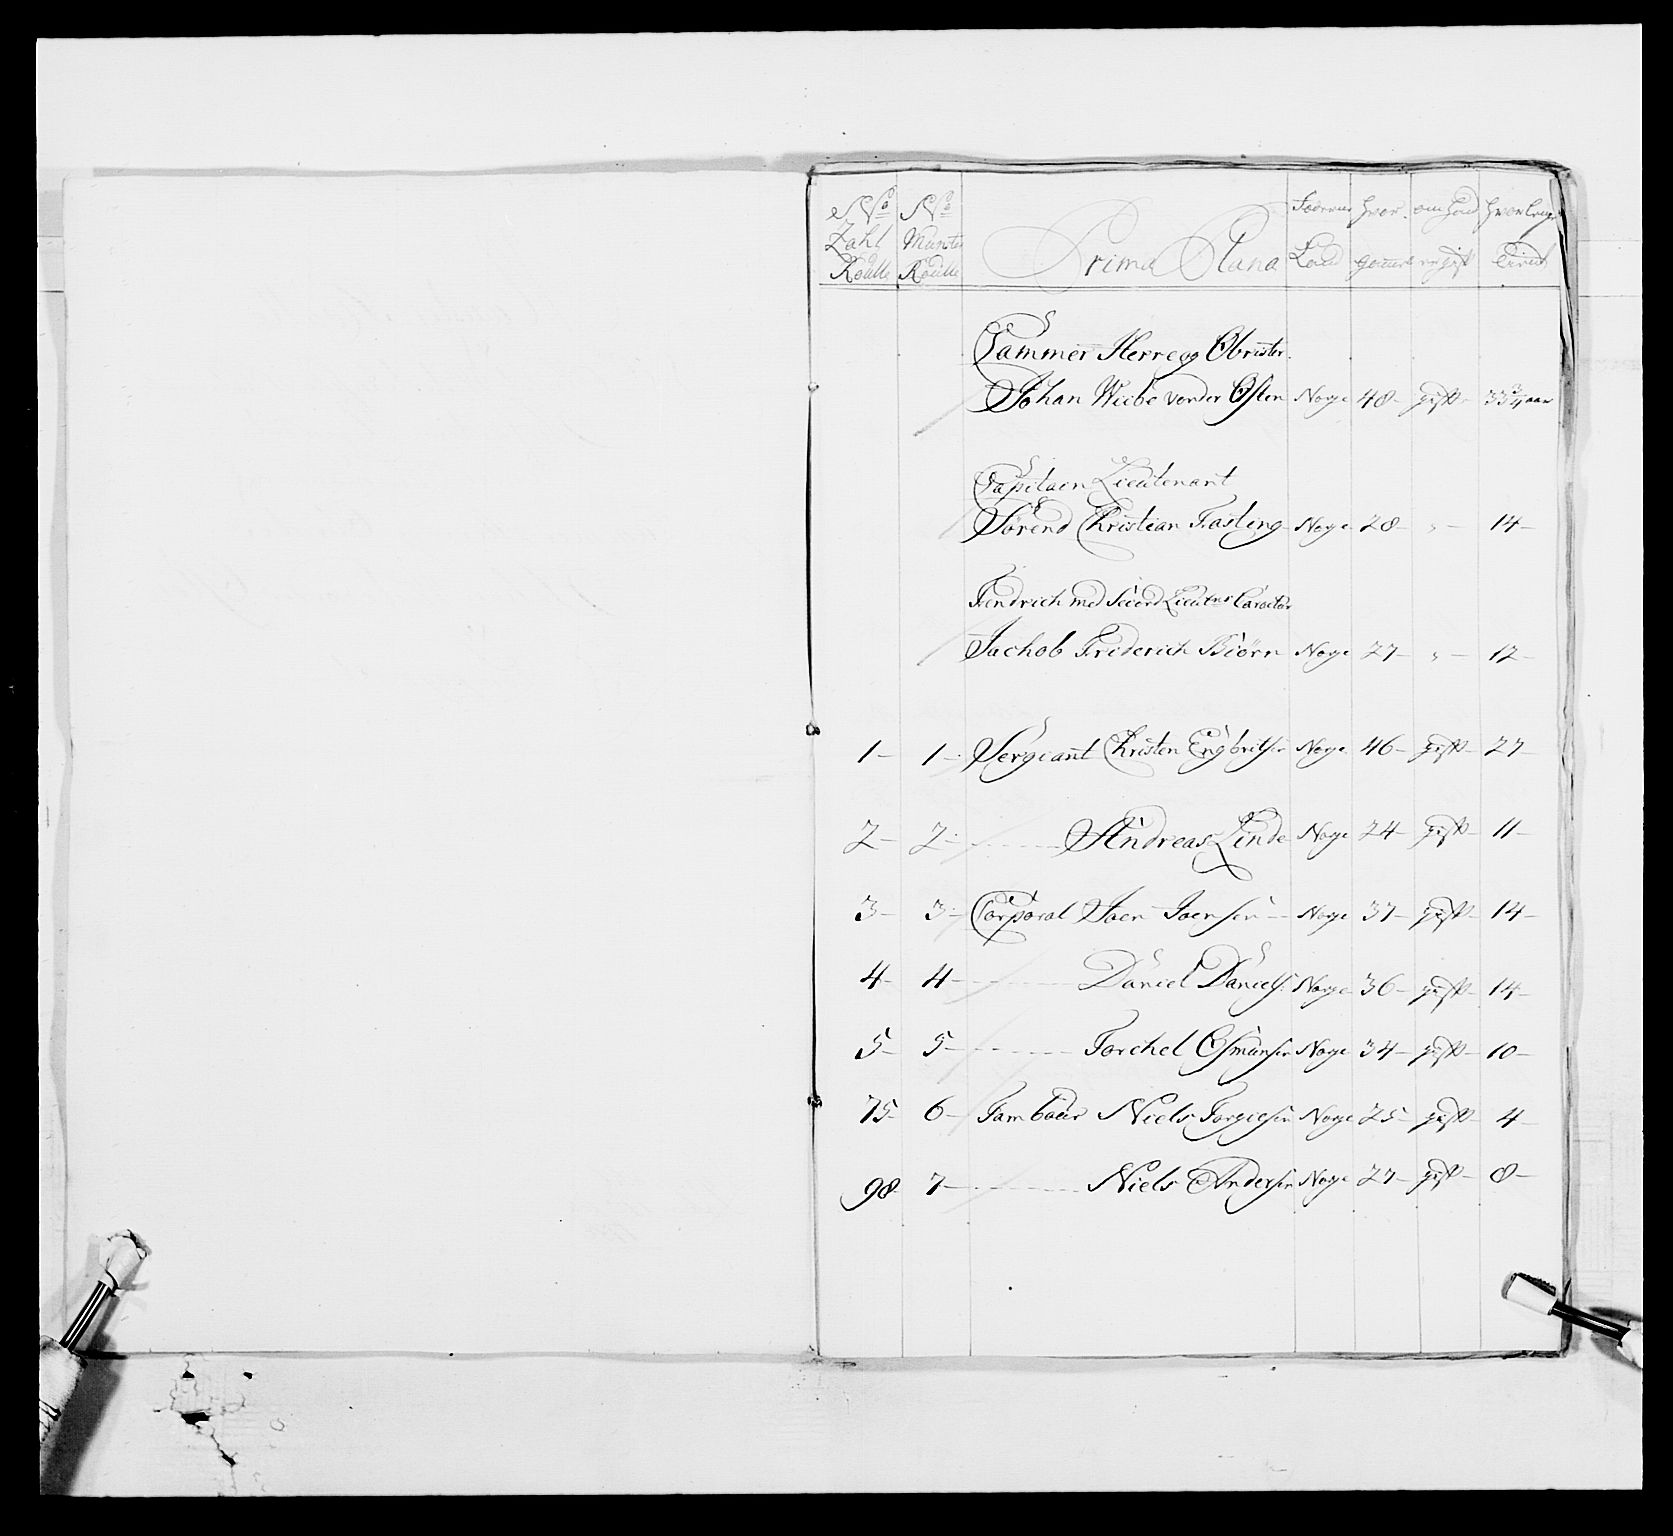 No No Føderne hvor om hand hvorlenge
Zahl Munster Prima Plana Land gammel er gift tient
Roulle Roulle
Cammer Herre og Obrister
Johan Wiibe von der Osten Norge 48 gift 33¾ aar
Capitain Lieutenant
Sørend Christian Fasting Norge 28 " 14
Fendrich med Second Lieutns Caracter
Jachob Friderich Biørn Norge 27 " 12
1 1 Sergiant Christen Engbritsen Norge 46 gift 27
2 2 Andreas Linde Norge 24 gift 11
3 3 Corporal Joen Joensen Norge 37 gift 14
4 4 Daniel Daniels: Norge 36 gift 14
5 5 Torchel Osmunsen Norge 34 gift 10
75 6 Tambour Niels Torgiesen Norge 25 gift 4
98 7 Niels Andersen Norge 27 gift 8